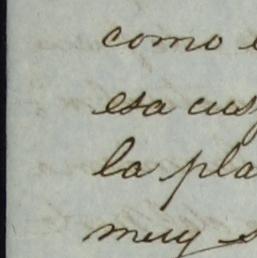 como
esa
la pla
muy